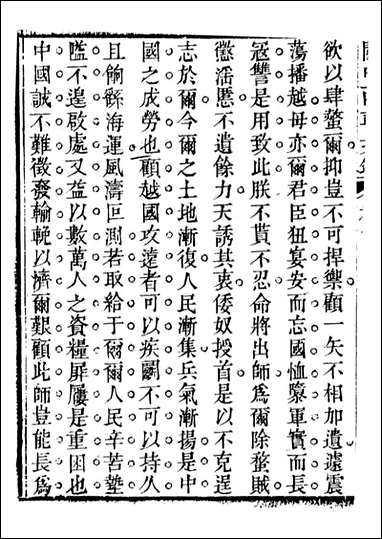 欲以肆螫爾抑豈不可捍禦顧一矢不相加遺遽震
蕩播越毋亦爾君臣狃宴安而忘國恤隳軍實而長
寇讐是用致此朕不貰不忍命將出師爲爾除螯賊
懲滔慝不遺餘力天誘其衷倭奴授首是以不克逞
志於爾今爾之土地漸復人民漸集兵氣漸揚是中
國之成勞也顧越國攻遠者可以疾鬬不可以持久
且餉繇海運風濤叵測若取給于爾爾人民辛苦墊
隘不遑啟處又益以數萬人之資糧屝屨是重困也
中國誠不難徵發輸輓以濟爾艱顧此師豈能長爲